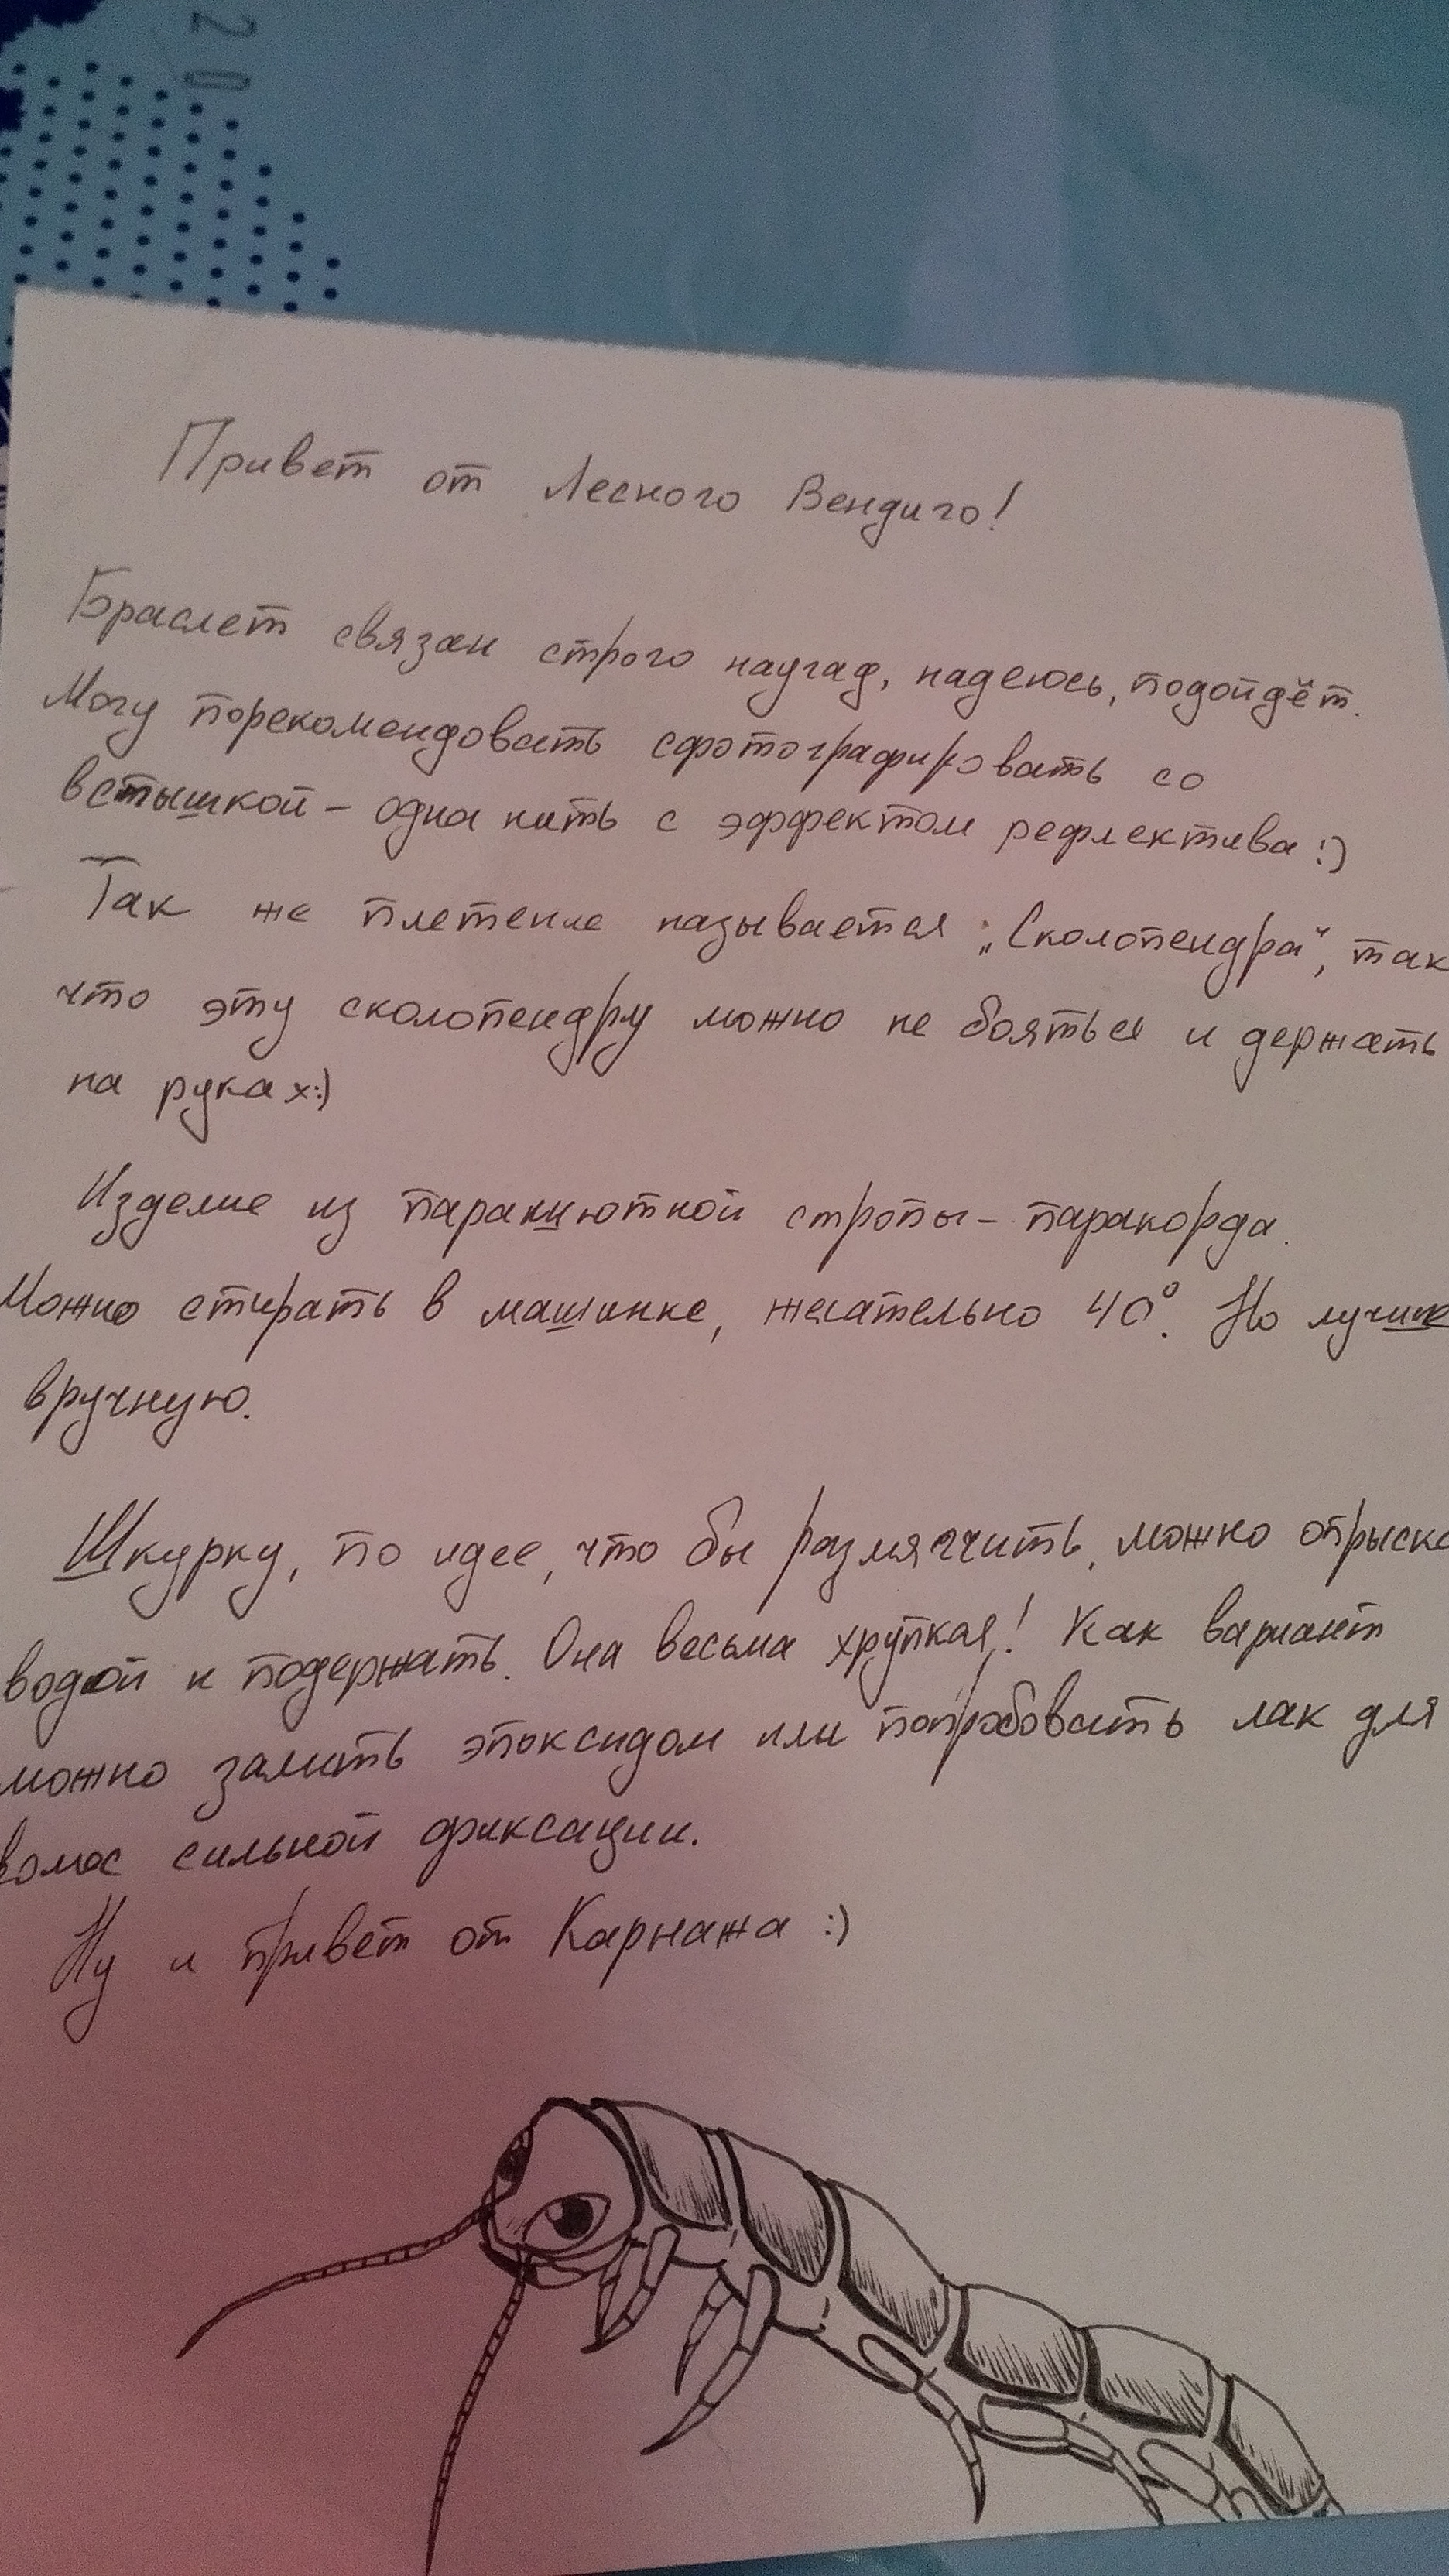 20
Привет от Лесного Вендиго!
Браслет связан строго наугад, надеюсь, подойдёт.
Могу порекомендовать сфотографировать со
вспышкой – одна нить с эффектом рефлектива :)
Так же плетение называется „Сколопендра“, так
что эту сколопендру можно не бояться и держать
на руках:)
Изделие из парашютной стропы – паракорда.
Можно стирать в машинке, желательно 40°. Но лучше
вручную.
Шкурку, по идее, что бы размягчить, можно опрыска
водой и подержать. Она весьма хрупкая! Как вариант
можно залить эпоксидом или попробовать лак для
волос сильной фиксации.
Ну и привет от Карнажа :)